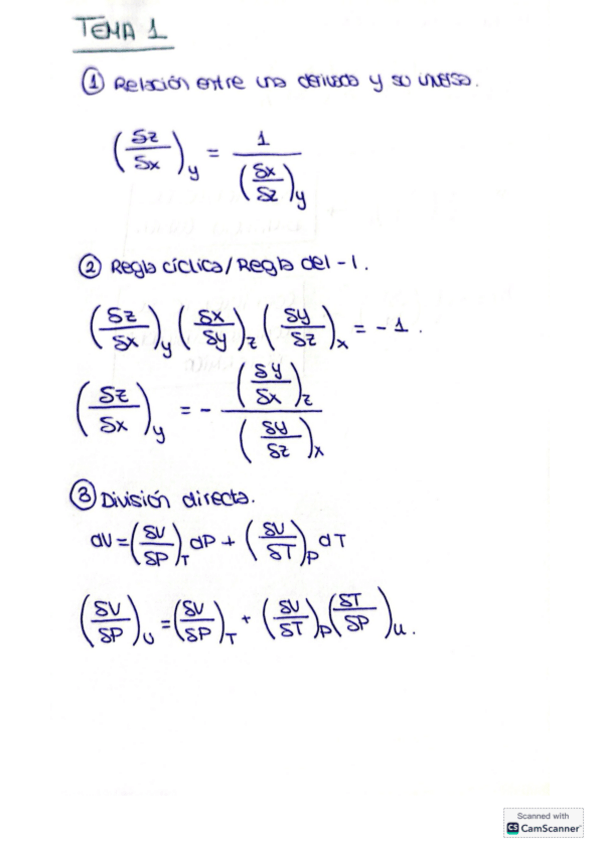 TEMA 1
① Relación entre una derivada y su inversa.
(δz/δx)_y = 1/(δx/δz)_y
② Regla cíclica/Regla del -1.
(δz/δx)_y (δx/δy)_z (δy/δz)_x = -1.
(δz/δx)_y = - (δy/δx)_z/(δy/δz)_x
③ División directa.
dV = (δV/δP)_T dP + (δV/δT)_P dT
(δV/δP)_U = (δV/δP)_T + (δV/δT)_P (δT/δP)_U.
Scanned with
CS CamScanner